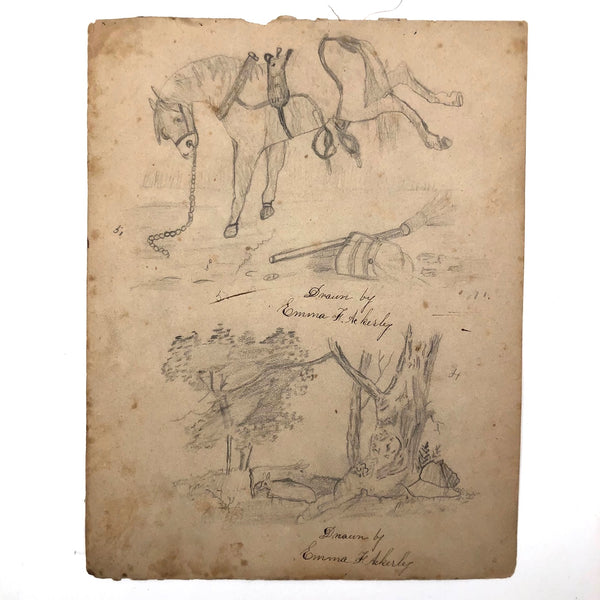 5,
Drawn by
Emma F. Ackerly
Drawn by
Emma F Ackerly